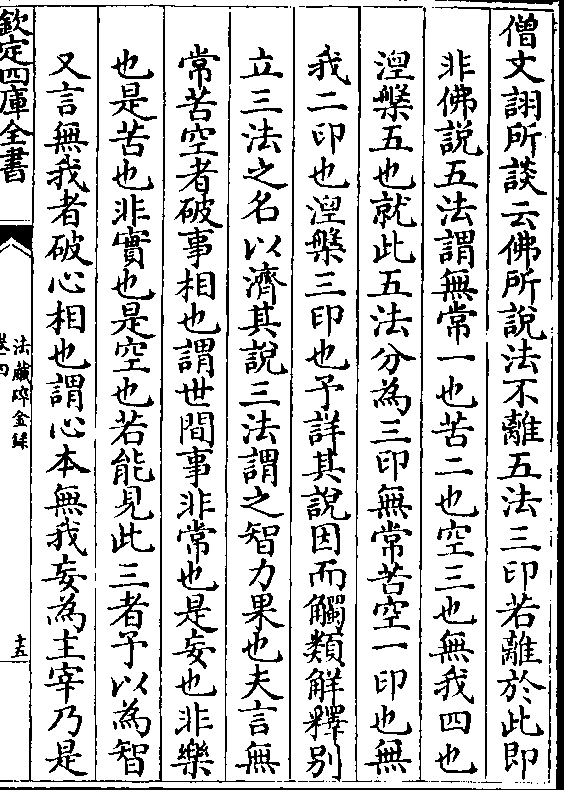 僧文詡所談云佛所說法不離五法三印若離於此即
非佛說五法謂無常一也苦二也空三也無我四也
湼槃五也就此五法分為三印無常苦空一印也無
我二印也湼槃三印也予詳其說因而觸類解釋別
立三法之名以濟其說三法謂之智力果也夫言無
常苦空者破事相也謂世間事非常也是妄也非樂
也是苦也非實也是空也若能見此三者予以為智
又言無我者破心相也謂心本無我妄為主宰乃是
欽定四庫全書
法藏碎金録
卷四
十五